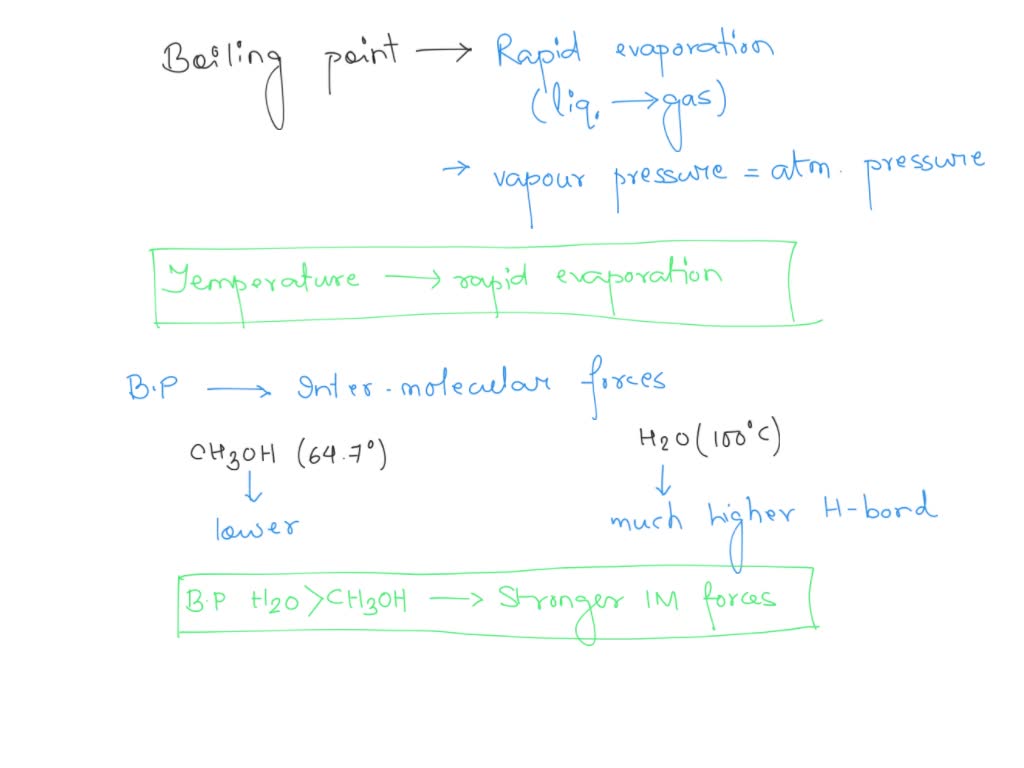 Boiling point → Rapid evaporation
(liq. → gas)
→ vapour pressure = atm. pressure
Temperature → rapid evaporation
B.P → Inter-molecular forces
CH3OH (64.7°) H2O (100°C)
↓ ↓
lower much higher H-bond
B.P H2O > CH3OH → Stronger IM forces